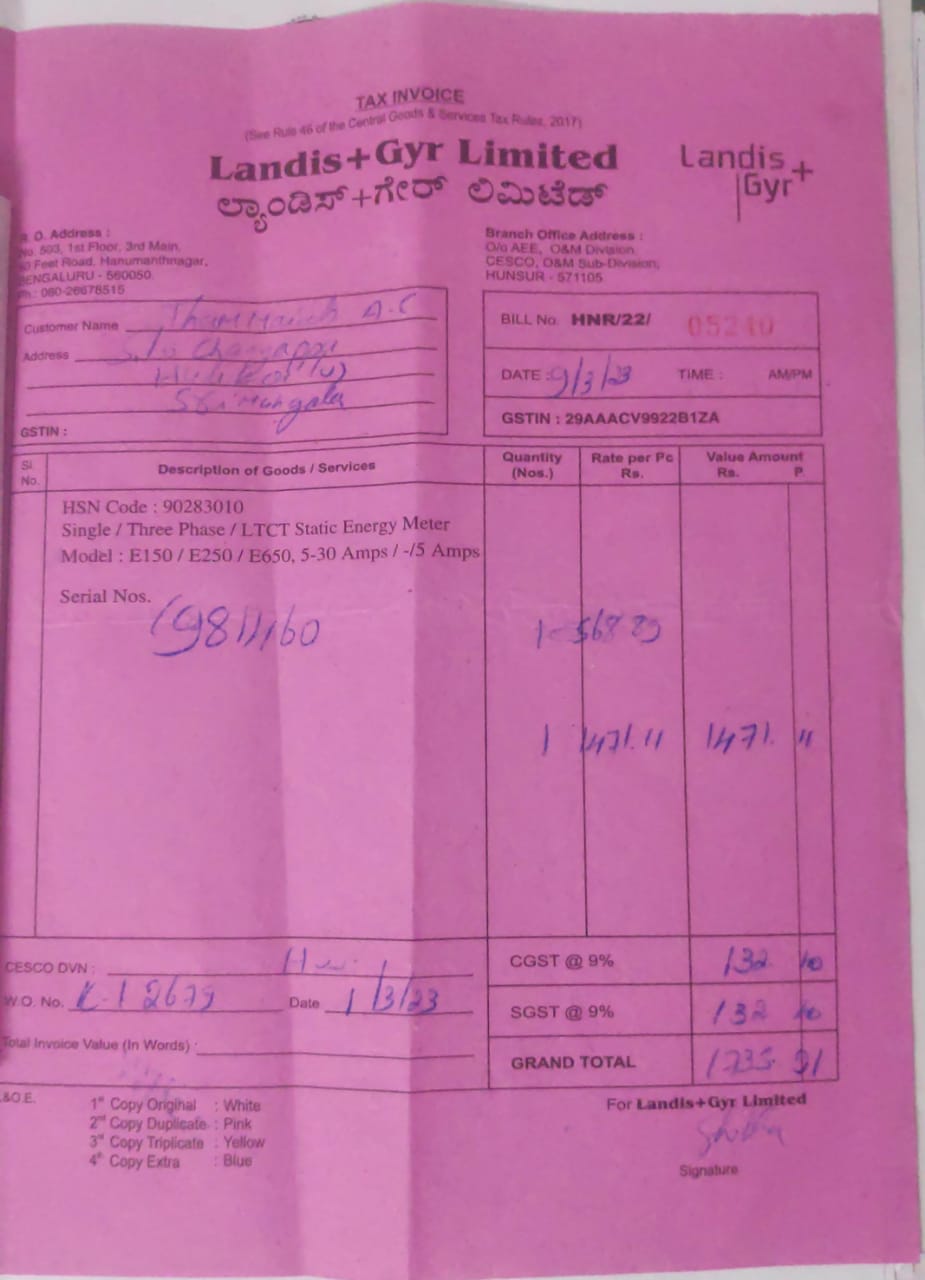 TAX INVOICE
(See Rule 46 of the Central Goods & Services Tax Rules, 2017)
Landis+Gyr Limited
ಲ್ಯಾಂಡಿಸ್+ಗೇರ್ ಲಿಮಿಟೆಡ್
Landis+
Gyr+
R. O. Address :
No. 593, 1st Floor, 3rd Main,
Feet Road, Hanumanthnagar,
BENGALURU - 560050
Ph : 080-26678515
Branch Office Address :
O/o AEE, O&M Division
CESCO, O&M Sub-Division,
HUNSUR - 571105
Customer Name A.C
Address
GSTIN :
BILL No. HNR/22/ 05240
DATE : 9/3/23 TIME : AM/PM
GSTIN : 29AAACV9922B1ZA
Sl. No. Description of Goods / Services Quantity (Nos.) Rate per Pc Rs. Value Amount Rs. P.
HSN Code : 90283010
Single / Three Phase / LTCT Static Energy Meter
Model : E150 / E250 / E650, 5-30 Amps / -/5 Amps
Serial Nos.
1 568 89
1 1471. 11 1471. 11
CESCO DVN :
W.O. No. K-1 2679 Date 1/3/23
Total Invoice Value (In Words) :
CGST @ 9% 132
SGST @ 9% 132
GRAND TOTAL 1735
&O.E.
1st Copy Original : White
2nd Copy Duplicate : Pink
3rd Copy Triplicate : Yellow
4th Copy Extra : Blue
For Landis+Gyr Limited
Signature